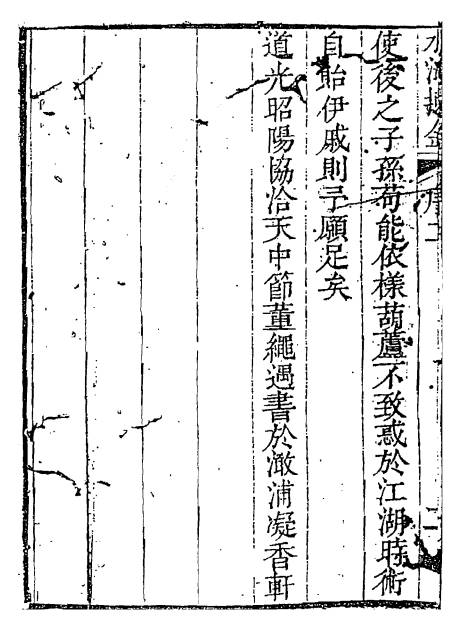 序二
二
使後之子孫苟能依樣葫蘆不致惑於江湖時術
自貽伊戚則予願足矣
道光昭陽協洽天中節董繩遇書於澉浦凝香軒